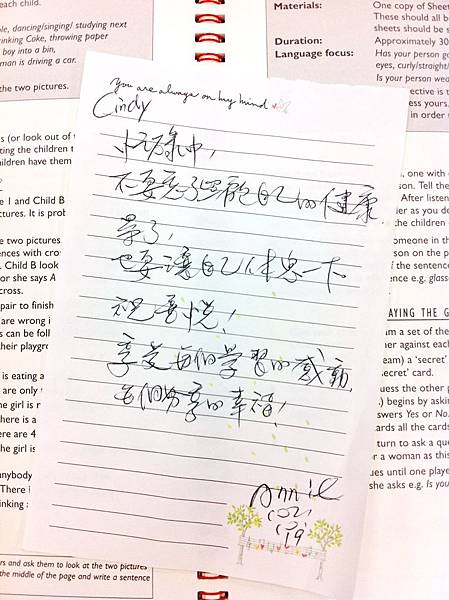 each child.
le, dancing/singing/ studying next
rinking Coke, throwing paper
boy into a bin,
man is driving a car.
the two pictures.
s (or look out of
ting the children t
ildren have them
e 1 and Child B
ctures. It is prob
e two pictures
ences with cro
. Child B look
or she says A
cross.
pair to finish
are wrong i
s can be foll
their playgro
is eating a
are only
he girl is r
here is a
ere are 4
the girl is
anybody
There i
inking
rs and ask them to look at the two pictures
the middle of the page and write a sentence
You are always on my mind
Cindy
忙碌中,
不要忘了照顧自己的健康.
累了,
也要讓自己休息一下
祝喜悅!
享受每個學習的感動,
每個分享的幸福!
Annie
19
Materials:
One copy of Sheet
These should all b
sheets should be s
Duration:
Approximately 30
Language focus:
Has your person go
eyes, curly/straight/
Is your person wea
ective is t
ess yours.
in order
, one with
son. Tell the
After listen
er as you de
the children
omeone in th
son on the p
f the sentenc
ence e.g. glass
AYING THE G
am a set of the
er against each
eam) a 'secret'
secret' card.
uess the other p
.) begins by aski
swers Yes or No.
ards all the cards
turn to ask a que
r a woman as this
ues until one playe
she asks e.g. Is you